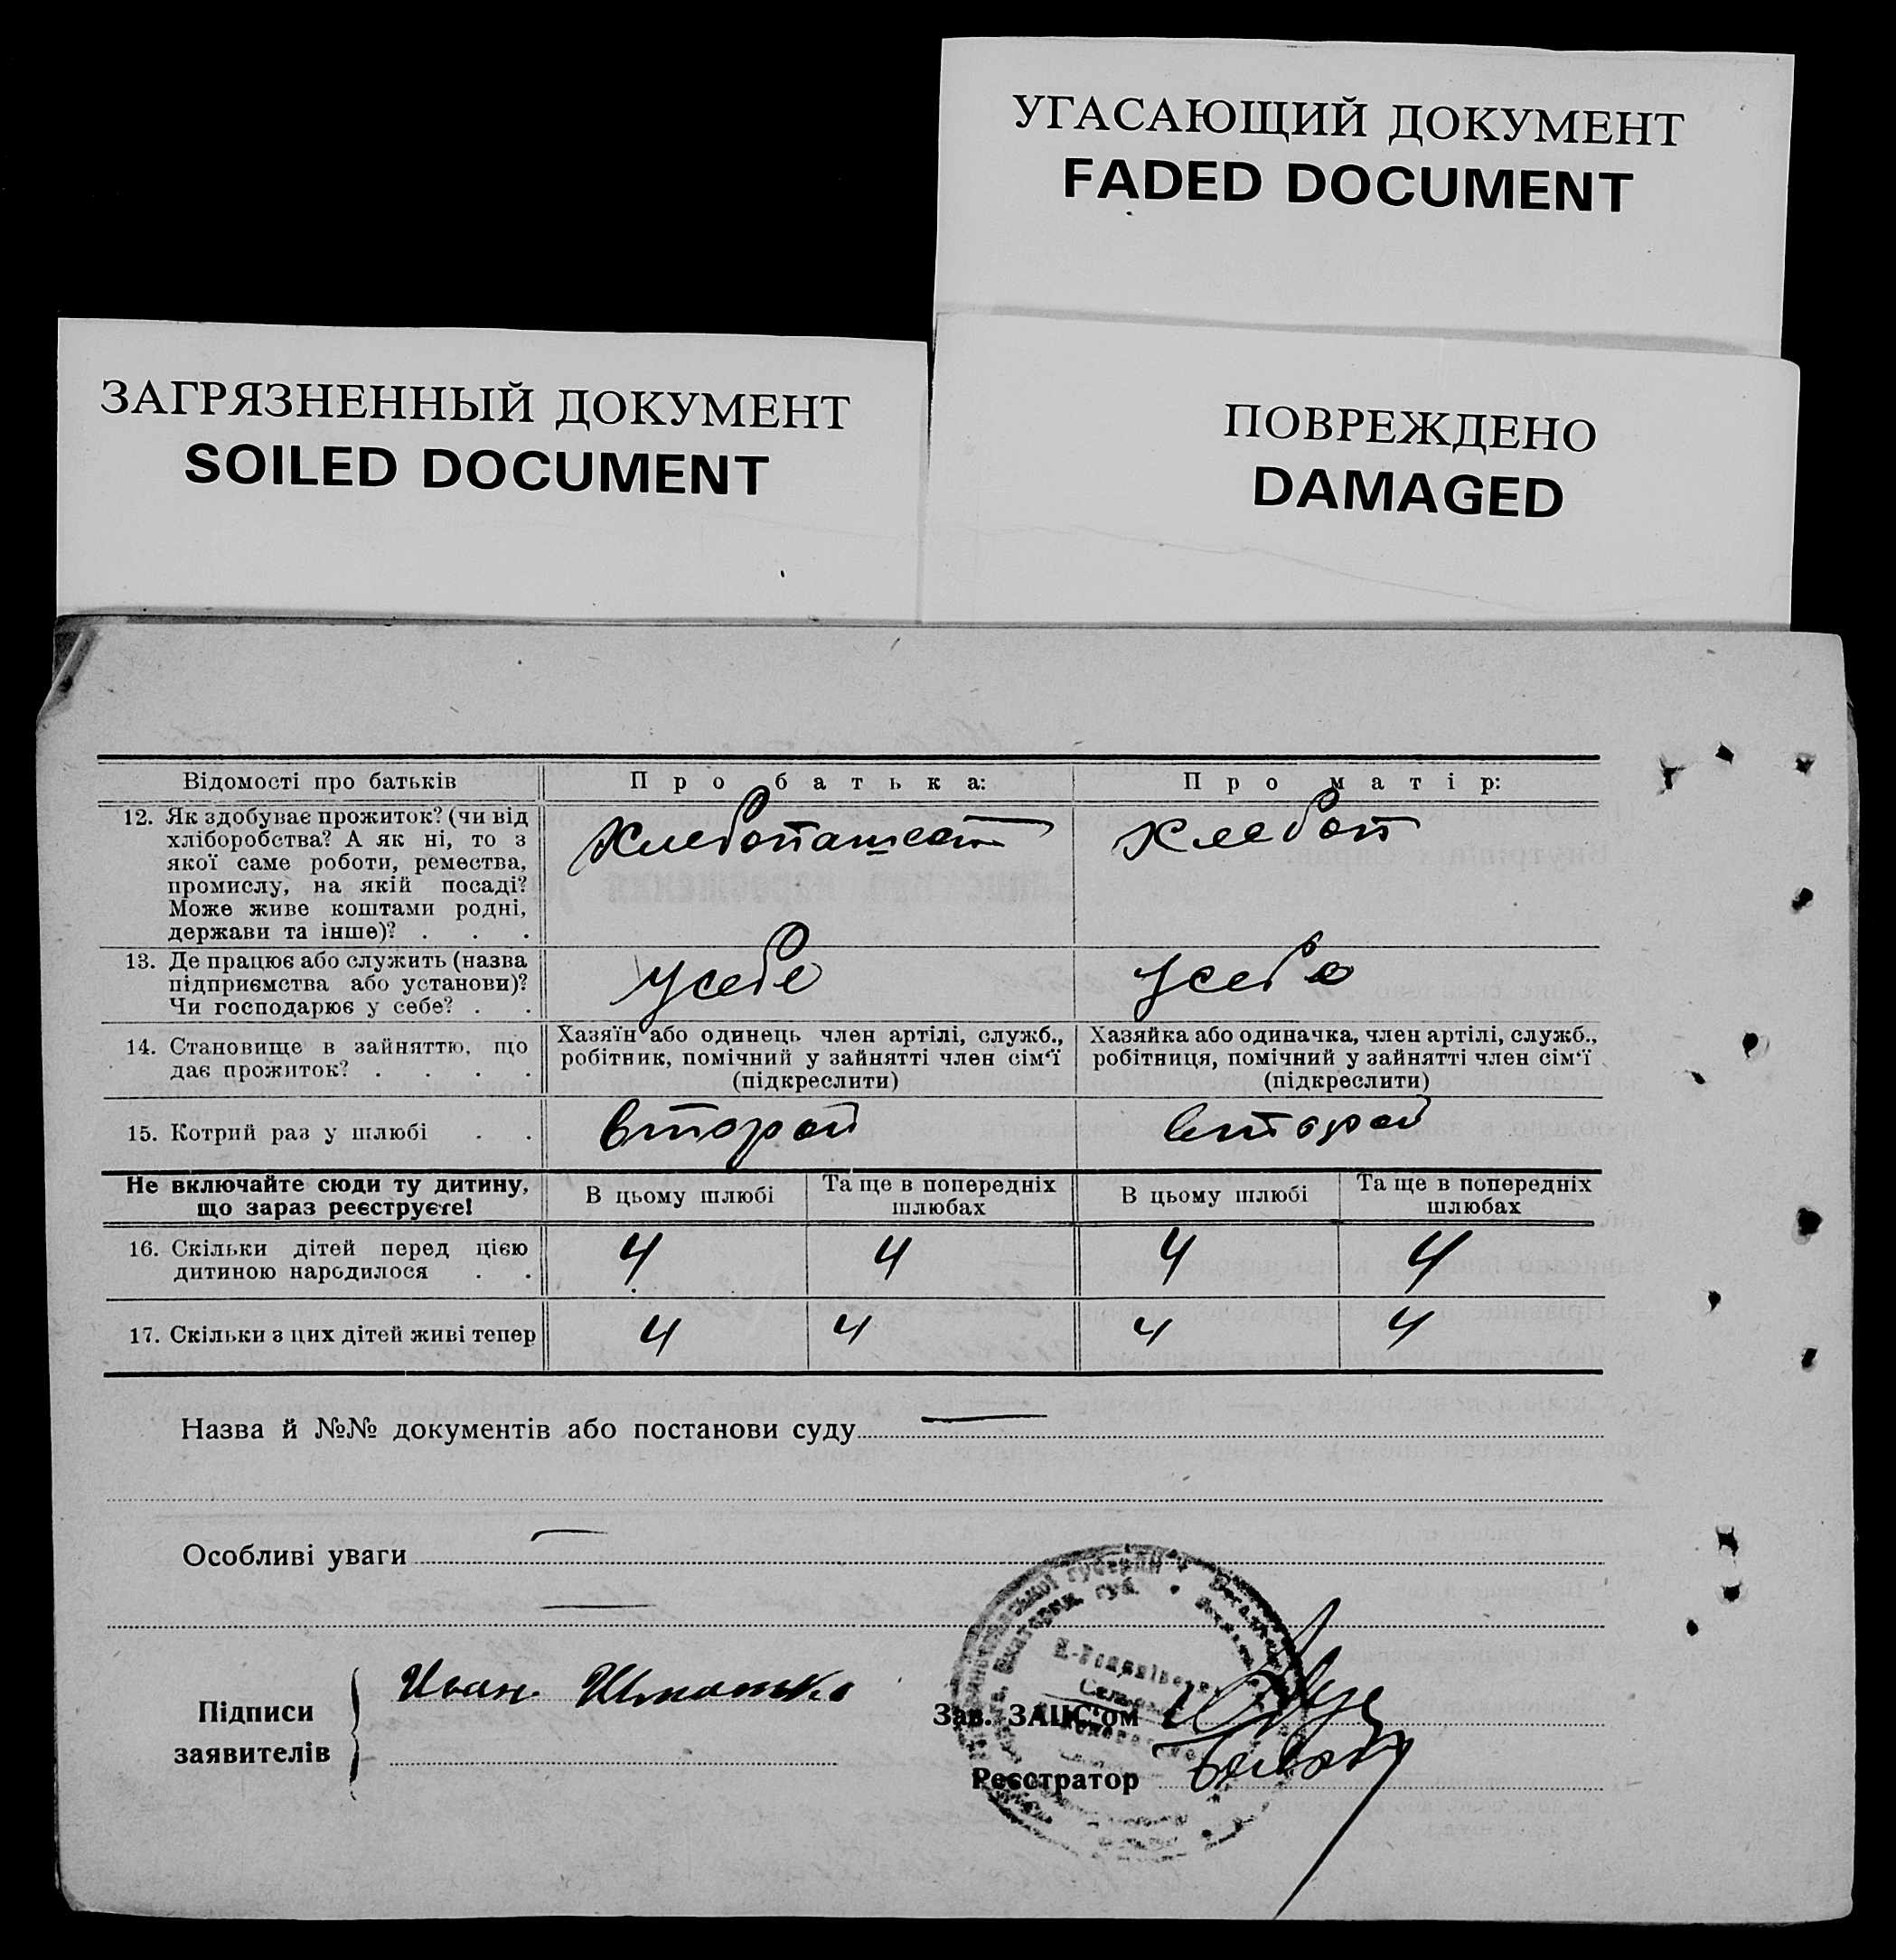 УГАСАЮЩИЙ ДОКУМЕНТ
FADED DOCUMENT
ЗАГРЯЗНЕННЫЙ ДОКУМЕНТ
SOILED DOCUMENT
ПОВРЕЖДЕНО
DAMAGED
Відомості про батьків
Про батька:
Про матір:
12. Як здобуває прожиток? (чи від
хліборобства? А як ні, то з
якої саме роботи, ремества,
промислу, на якій посаді?
Може живе коштами родні,
держави та інше)? . . .
Хлебопашест
Хлебоп
13. Де працює або служить (назва
підприємства або установи)?
Чи господарює у себе? . .
У себе
У себе
14. Становище в зайняттю, що
дає прожиток? . . . .
Хазяїн або одинець член артілі, служб.,
робітник, помічний у зайнятті член сім'ї
(підкреслити)
Хазяйка або одиначка, член артілі, служб.,
робітниця, помічний у зайнятті член сім'ї
(підкреслити)
15. Котрий раз у шлюбі . .
второй
второй
Не включайте сюди ту дитину,
що зараз реєструєте!
В цьому шлюбі
Та ще в попередніх
шлюбах
В цьому шлюбі
Та ще в попередніх
шлюбах
16. Скільки дітей перед цією
дитиною народилося . .
4 4 4 4
17. Скільки з цих дітей живі тепер
4 4 4 4
Назва й №№ документів або постанови суду
Особливі уваги
Підписи
заявителів
Иван
Зав. ЗАЦС'ом
Реєстратор